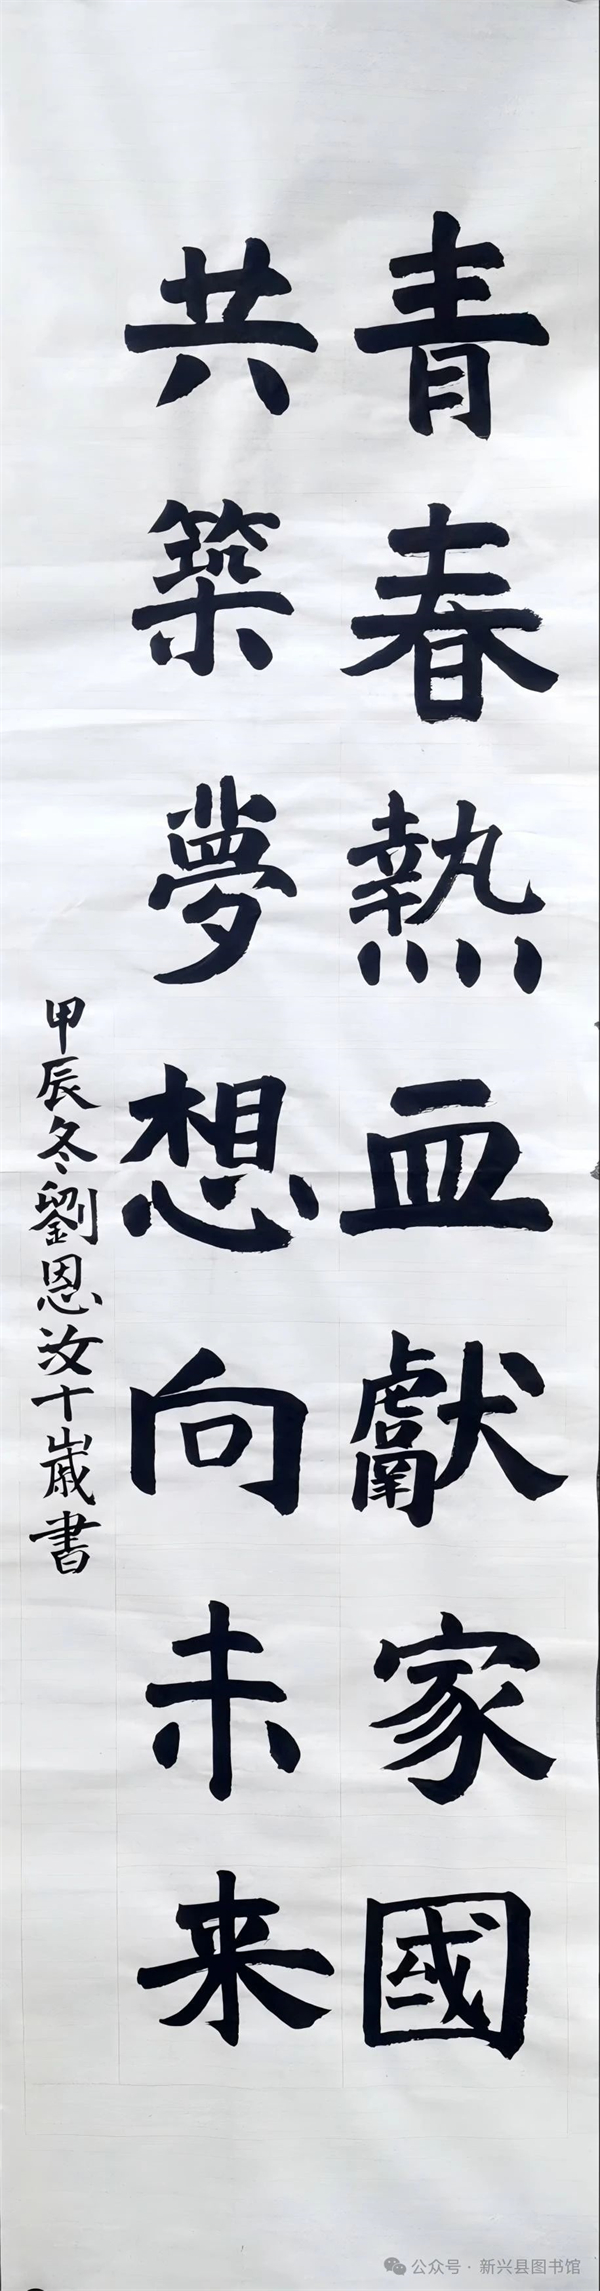 青春熱血獻家國
共築夢想向未来
甲辰冬劉恩汝十歲書
公众号·新兴县图书馆